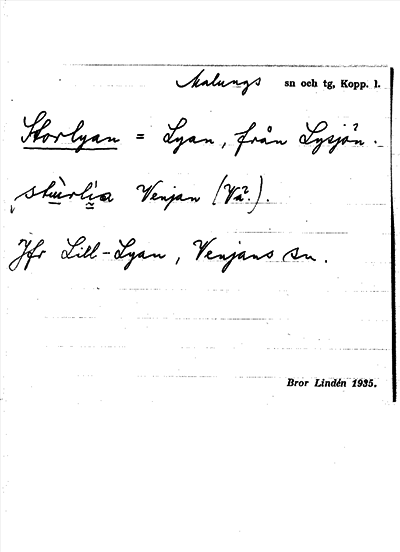 Malungs sn och tg, Kopp. l.
Storlyan = Lyan, från Lysjön.
Venjan (Vä.).
Jfr Lill-Lyan, Venjans sn.
Bror Lindén 1935.